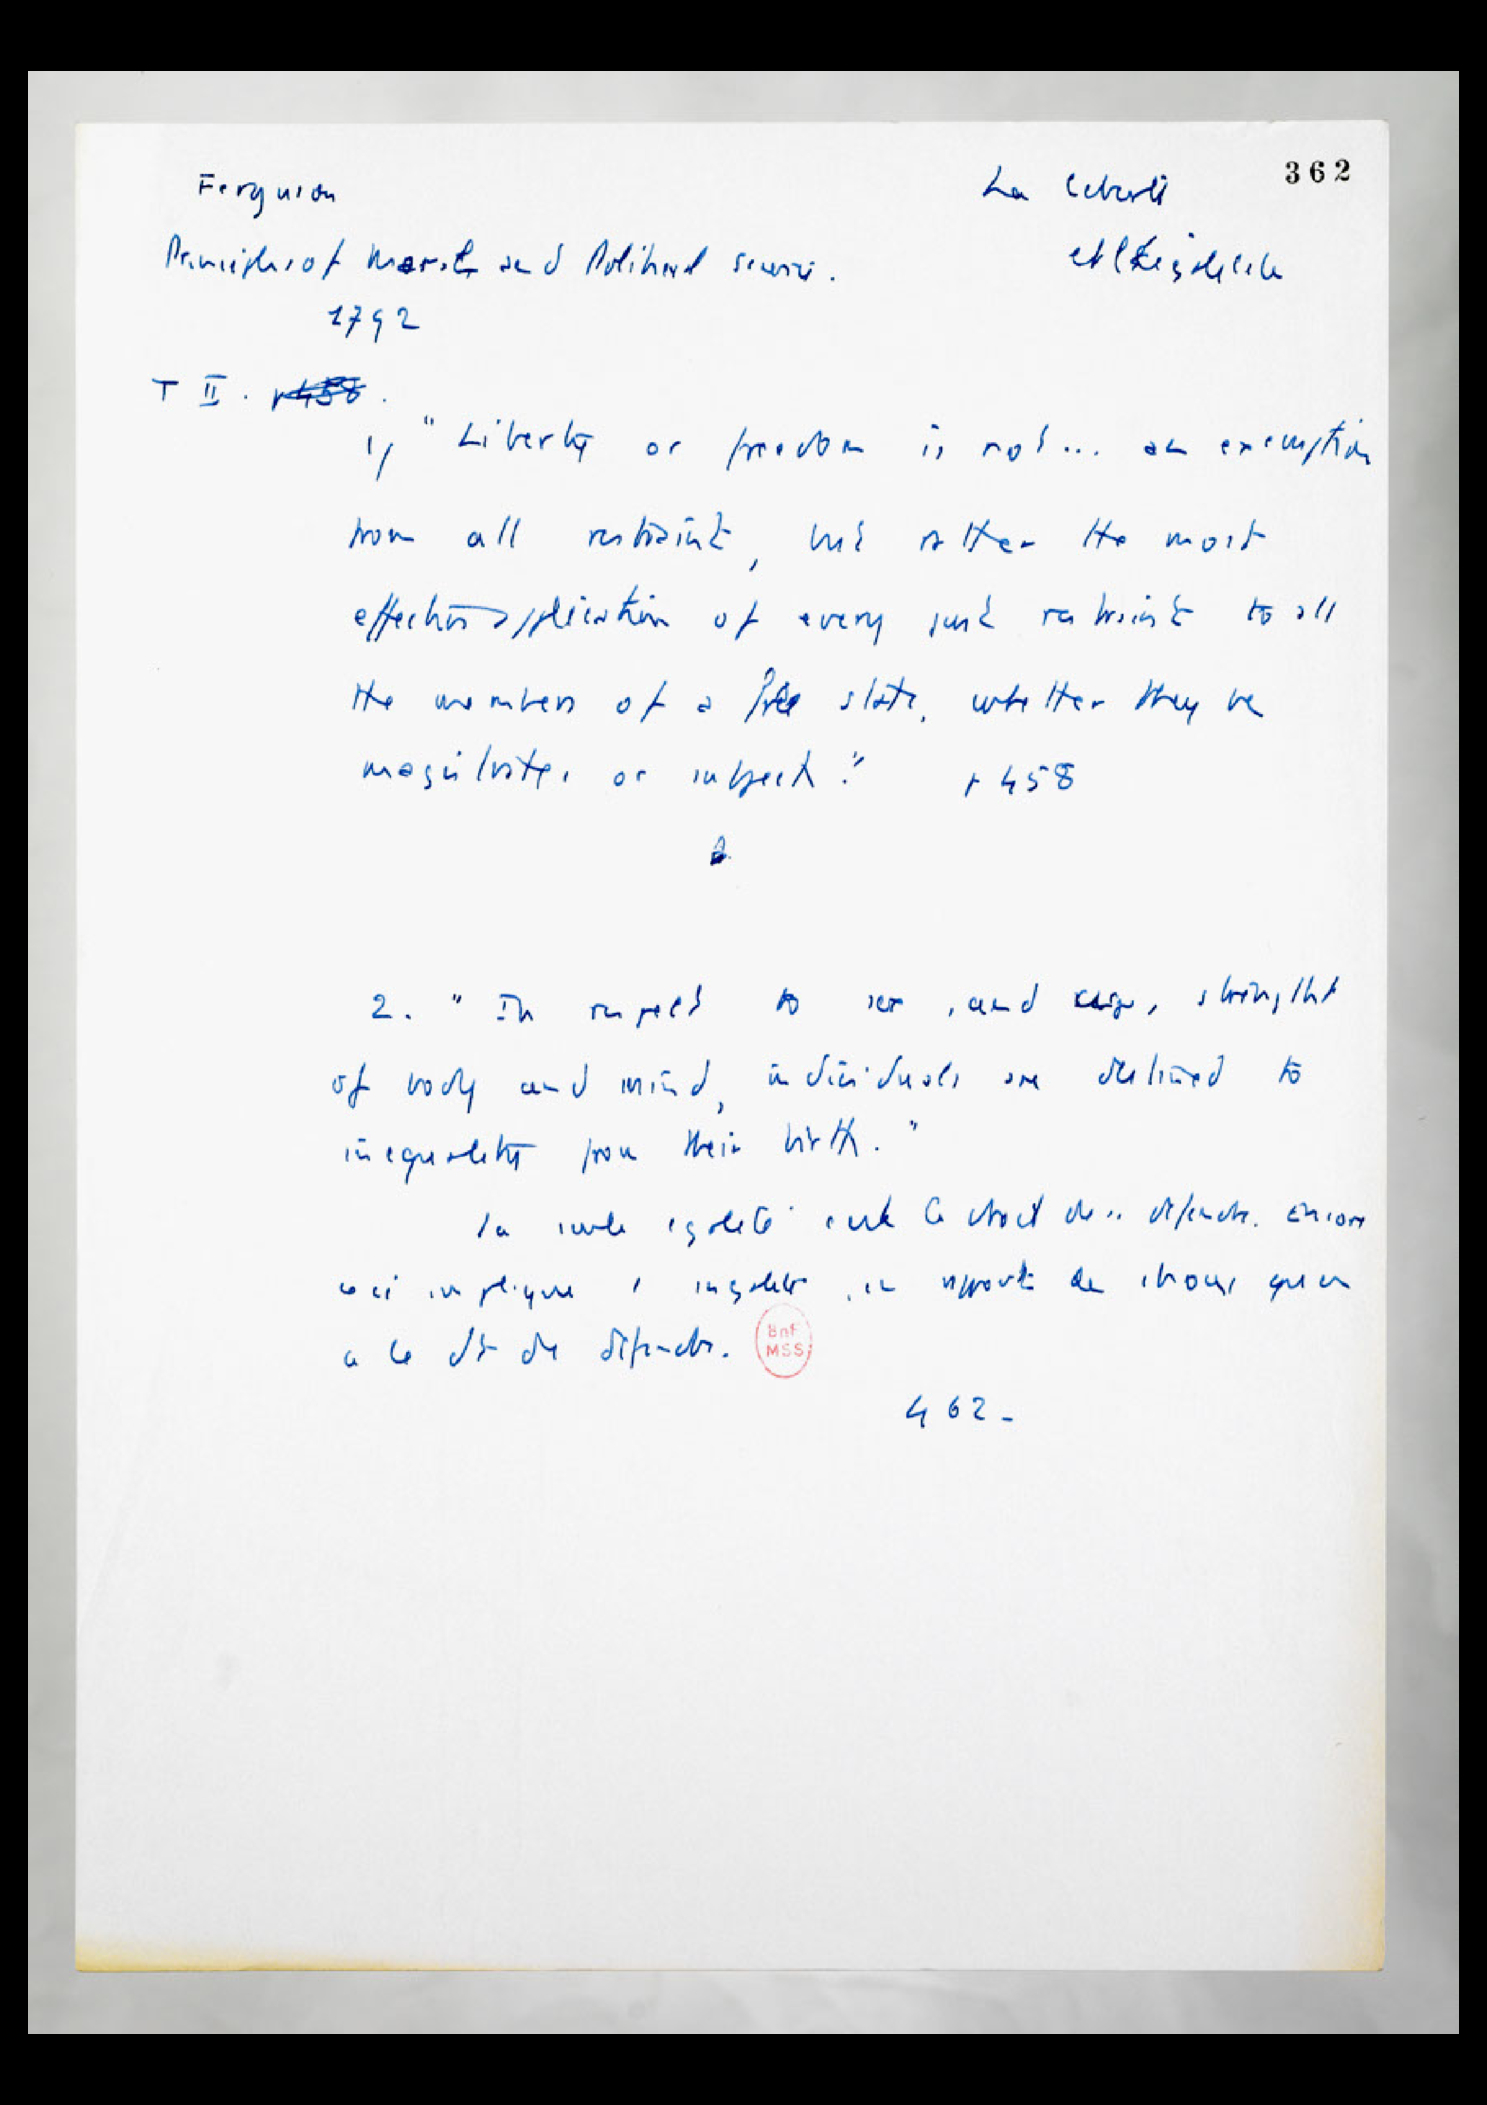 362
Ferguson
La liberté
Principles of Moral and Political Science.
et l'inégalité
1792
T II. p 458.
1/ "Liberty or freedom is not... an exemption
from all restraint, but rather the most
effective application of every just restraint to all
the members of a free state, whether they be
magistrates or subject." p 458
2. "In respect to sex, and age, strenght
of body and mind, individuals are destined to
inequality from their birth."
la seule égalité c'est le droit de se défendre. Encore
ceci implique l'inégalité, en rapport de choses qu'on
a le dt de défendre.
BnF
MSS
462-